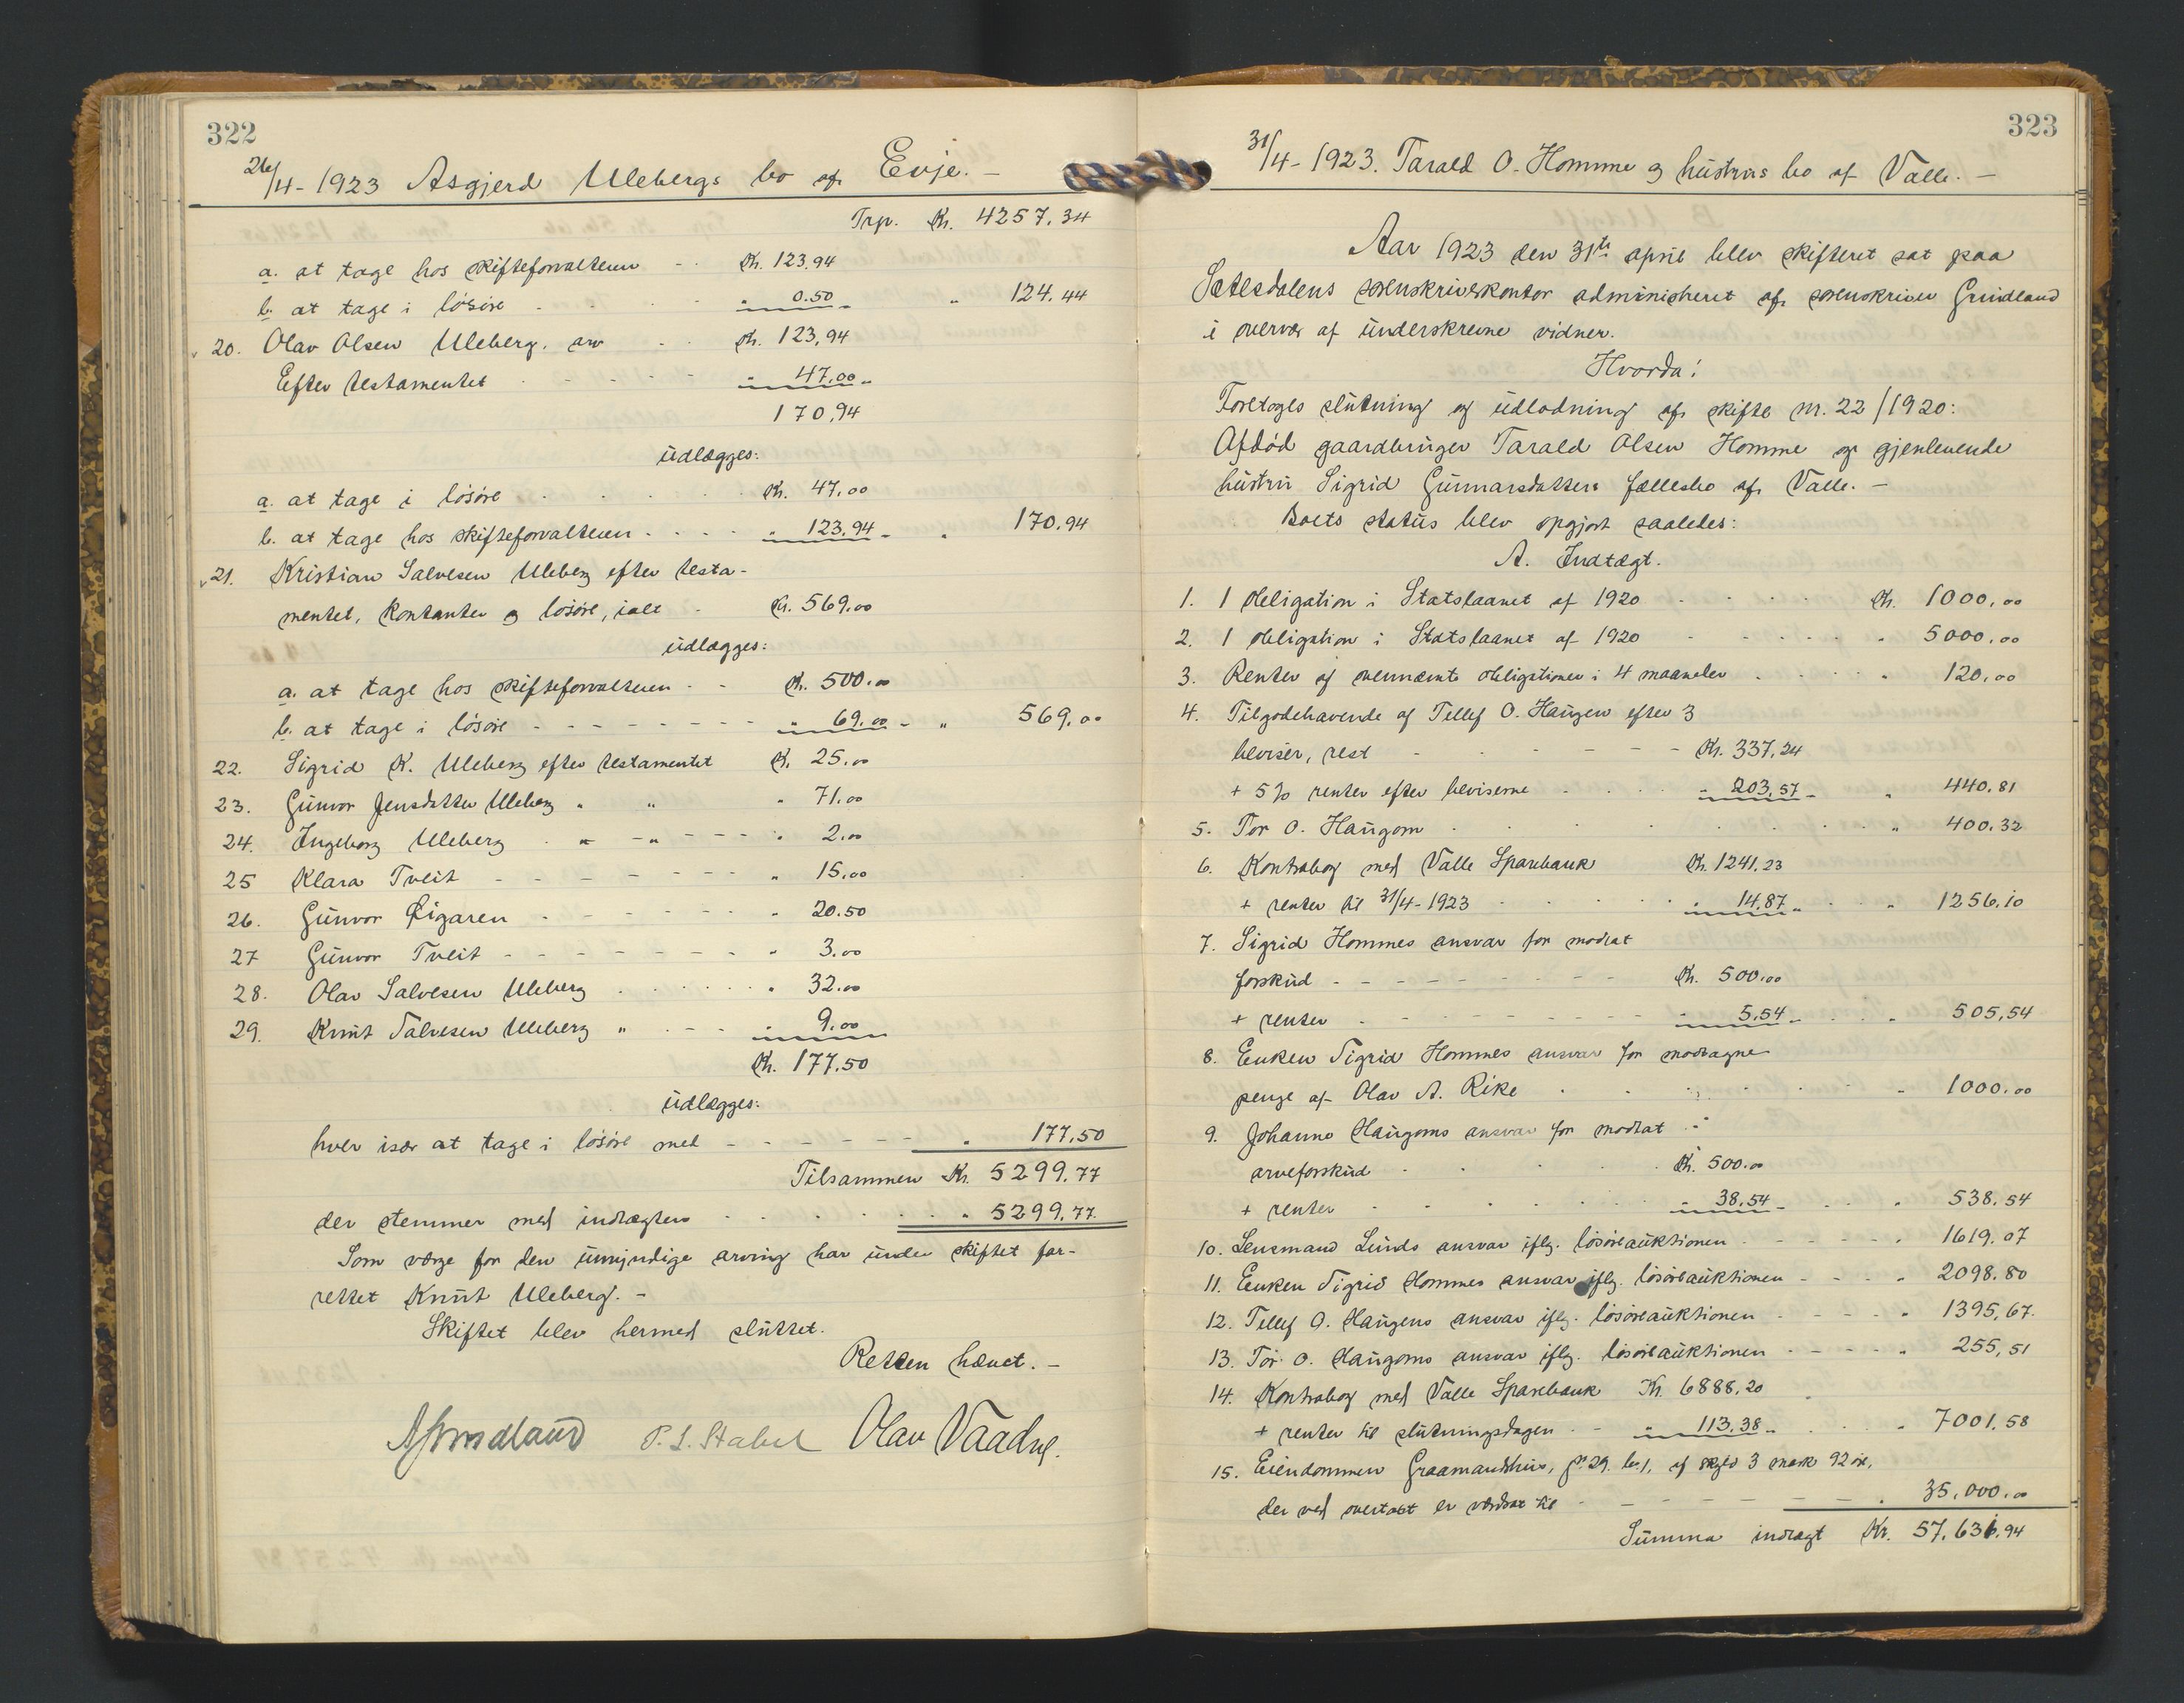 322
26/4 - 1923 Asgjerd Ulebergs bo af Evje. -
Trp. Kr. 4257.34
a. at tage hos skifteforvalteren - - Kr. 123.94
b. at tage i løsøre - - - " 0.50 - " 124.44
20. Olav Olsen Uleberg, arv - - Kr. 123,94
Efter testamentet - - - - - " 47.00 "
170,94
udlægges:
a. at tage i løsøre - - - - Kr. 47.00
b. at tage hos skifteforvalteren - - - - " 123.94 - " 170.94
21. Kristian Salvesen Uleberg efter testa-
mentet, kontanter og løsøre, ialt - Kr. 569.00
udlægges:
a. at tage hos skifteforvalteren - - Kr. 500.00
b. at tage i løsøre - - - - - - - - " 69.00 - " 569.00
22. Sigrid K. Uleberg efter testamentet K. 25.00
23. Gunvor Jensdatter Uleberg " " " 71.00
24. Ingeborg Uleberg - " - " - - - " 2.00
25 Klara Tveit - - - - - - - - " 15.00
26. Gunvor Rigaren - - - - - - - " 20.50
27 Gunvor Tveit - - - - - - - - " 3.00
28. Olav Salvesen Uleberg - - - - - - " 32.00
29. Knut Salvesen Uleberg " - - - " 9.00
Kr. 177.50
udlægges:
hver især at tage i løsøre med - - - - - - " 177.50
Tilsammen Kr. 5299.77
der stemmer med indtægten - - - - - - " 5299.77
Som værge for den umyndige arving har under skiftet for-
rettet Knut Uleberg. -
Skiftet blev hermed sluttet.
Retten hævet. -
P. S. Stabel Olav Vaadne.
323
31/4 - 1923. Tarald O. Homme og hustrus bo af Valle. -
Aar 1923 den 31te april blev skifteret sat paa
Sætesdalens sorenskriverkontor administreret af sorenskriver Grundland
i overvær af underskrevne vidner.
Hvorda:
Foretoges slutning og udlodning af skifte nr. 22/1920:
Afdød gaardbruger Tarald Olsen Homme og gjenlevende
hustru Sigrid Gunnarsdatters fællesbo af Valle. -
Boets status blev opgjort saaledes:
A. Indtægt.
1. 1 obligation i Statslaanet af 1920 - - - - Kr. 1000.00
2. 1 obligation i Statslaanet af 1920 - - - - - " 5000.00
3. Renter af ovennævnte obligationer i 4 maaneder - - - - " 120.00
4. Tilgodehavende af Tellef O. Haugen efter 3
beviser, rest - - - - - - Kr. 337,24
+ 5% renter efter beviserne - - - - " 203,57 - " 440.81
5. Tor O. Haugom - - - - - - - - " 400.32
6. Kontrabog med Valle Sparebank Kr. 1241.23
+ renter til 31/4 - 1923 - - - - - " 14.87 " - - " 1256.10
7. Sigrid Hommes ansvar for modtat
forskud - - - - - - - - - Kr. 500.00
+ renter - - - - - - - - - " 5.54 - - - " 505,54
8. Enken Sigrid Hommes ansvar for modtagne
penge af Olav A. Rike - - - - - - - " 1000.00
9. Johanne Haugoms ansvar for modtat
arveforskud - - - - - - Kr. 500.00
+ renter - - - - - - - " 38.54 - - - " 538.54
10. Lensmand Lunds ansvar iflg. løsøreauktionen - - - - - - " 1619.07
11. Enken Sigrid Hommes ansvar iflg. løsøreauktionen - - - - " 2098.80
12. Tellef O. Haugens ansvar iflg. løsøreauktionen - - - - - " 1395,67.
13. Tor O. Haugoms ansvar iflg. løsøreauktionen - - - - - " 255,51
14. Kontrabog med Valle Sparebank Kr. 6888,20
+ renter til slutningsdagen - - " 113.38 " - - " 7001,58
15. Eiendommen Graamandshus, gr. 29. br. 1, af skyld 3 mark 92 øre,
der ved overtakt er værdsat til - - - - - - - " 35,000.00
Summa indtægt Kr. 57.631.94